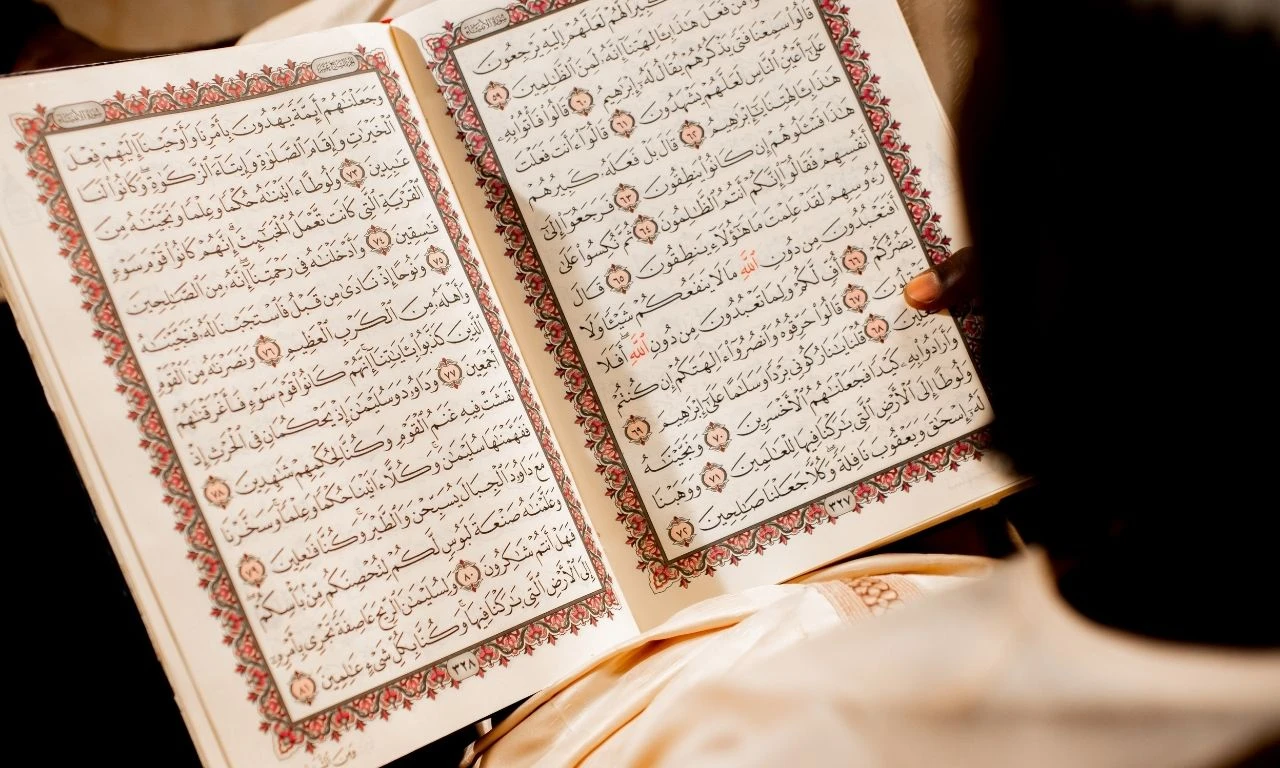 سُورَةُ الأَنبِيَاءِ
كَبِيرًا لَّهُمْ لَعَلَّهُمْ إِلَيْهِ يَرْجِعُونَ
مَن فَعَلَ هَٰذَا بِـَٔالِهَتِنَآ إِنَّهُۥ لَمِنَ ٱلظَّٰلِمِينَ ٥٩
قَالُوا۟ سَمِعْنَا فَتًى يَذْكُرُهُمْ يُقَالُ لَهُۥٓ إِبْرَٰهِيمُ ٦٠ قَالُوا۟ فَأْتُوا۟ بِهِۦ
عَلَىٰٓ أَعْيُنِ ٱلنَّاسِ لَعَلَّهُمْ يَشْهَدُونَ ٦١ قَالُوٓا۟ ءَأَنتَ فَعَلْتَ
هَٰذَا بِـَٔالِهَتِنَا يَٰٓإِبْرَٰهِيمُ ٦٢ قَالَ بَلْ فَعَلَهُۥ كَبِيرُهُمْ
هَٰذَا فَسْـَٔلُوهُمْ إِن كَانُوا۟ يَنطِقُونَ ٦٣ فَرَجَعُوٓا۟ إِلَىٰٓ
أَنفُسِهِمْ فَقَالُوٓا۟ إِنَّكُمْ أَنتُمُ ٱلظَّٰلِمُونَ ٦٤ ثُمَّ نُكِسُوا۟ عَلَىٰ
رُءُوسِهِمْ لَقَدْ عَلِمْتَ مَا هَٰٓؤُلَآءِ يَنطِقُونَ ٦٥ قَالَ
أَفَتَعْبُدُونَ مِن دُونِ ٱللَّهِ مَا لَا يَنفَعُكُمْ شَيْـًٔا وَلَا
يَضُرُّكُمْ ٦٦ أُفٍّ لَّكُمْ وَلِمَا تَعْبُدُونَ مِن دُونِ ٱللَّهِ أَفَلَا
٦٧ قَالُوا۟ حَرِّقُوهُ وَٱنصُرُوٓا۟ ءَالِهَتَكُمْ إِن كُنتُمْ
٦٨ قُلْنَا يَٰنَارُ كُونِى بَرْدًا وَسَلَٰمًا عَلَىٰٓ إِبْرَٰهِيمَ ٦٩
وَأَرَادُوا۟ بِهِۦ كَيْدًا فَجَعَلْنَٰهُمُ ٱلْأَخْسَرِينَ ٧٠ وَنَجَّيْنَٰهُ
وَلُوطًا إِلَى ٱلْأَرْضِ ٱلَّتِى بَٰرَكْنَا فِيهَا لِلْعَٰلَمِينَ ٧١ وَوَهَبْنَا
لَهُۥٓ إِسْحَٰقَ وَيَعْقُوبَ نَافِلَةً وَكُلًّا جَعَلْنَا صَٰلِحِينَ ٧٢
٣٢٧
سُورَةُ الأَنبِيَاءِ
وَجَعَلْنَٰهُمْ أَئِمَّةً يَهْدُونَ بِأَمْرِنَا وَأَوْحَيْنَآ إِلَيْهِمْ فِعْلَ
ٱلْخَيْرَٰتِ وَإِقَامَ ٱلصَّلَوٰةِ وَإِيتَآءَ ٱلزَّكَوٰةِ وَكَانُوا۟ لَنَا
عَٰبِدِينَ ٧٣ وَلُوطًا ءَاتَيْنَٰهُ حُكْمًا وَعِلْمًا وَنَجَّيْنَٰهُ مِنَ
ٱلْقَرْيَةِ ٱلَّتِى كَانَت تَّعْمَلُ ٱلْخَبَٰٓئِثَ إِنَّهُمْ كَانُوا۟ قَوْمَ سَوْءٍ
فَٰسِقِينَ ٧٤ وَأَدْخَلْنَٰهُ فِى رَحْمَتِنَآ إِنَّهُۥ مِنَ ٱلصَّٰلِحِينَ
٧٥ وَنُوحًا إِذْ نَادَىٰ مِن قَبْلُ فَٱسْتَجَبْنَا لَهُۥ فَنَجَّيْنَٰهُ
وَأَهْلَهُۥ مِنَ ٱلْكَرْبِ ٱلْعَظِيمِ ٧٦ وَنَصَرْنَٰهُ مِنَ ٱلْقَوْمِ
ٱلَّذِينَ كَذَّبُوا۟ بِـَٔايَٰتِنَآ إِنَّهُمْ كَانُوا۟ قَوْمَ سَوْءٍ فَأَغْرَقْنَٰهُمْ
أَجْمَعِينَ ٧٧ وَدَاوُۥدَ وَسُلَيْمَٰنَ إِذْ يَحْكُمَانِ فِى ٱلْحَرْثِ إِذْ
نَفَشَتْ فِيهِ غَنَمُ ٱلْقَوْمِ وَكُنَّا لِحُكْمِهِمْ شَٰهِدِينَ ٧٨
فَفَهَّمْنَٰهَا سُلَيْمَٰنَ وَكُلًّا ءَاتَيْنَا حُكْمًا وَعِلْمًا وَسَخَّرْنَا
مَعَ دَاوُۥدَ ٱلْجِبَالَ يُسَبِّحْنَ وَٱلطَّيْرَ وَكُنَّا فَٰعِلِينَ ٧٩
وَعَلَّمْنَٰهُ صَنْعَةَ لَبُوسٍ لَّكُمْ لِتُحْصِنَكُم مِّنۢ بَأْسِكُمْ
فَهَلْ أَنتُمْ شَٰكِرُونَ ٨٠ وَلِسُلَيْمَٰنَ ٱلرِّيحَ عَاصِفَةً تَجْرِى بِأَمْرِهِۦٓ
إِلَى ٱلْأَرْضِ ٱلَّتِى بَٰرَكْنَا فِيهَا وَكُنَّا بِكُلِّ شَىْءٍ عَٰلِمِينَ ٨١
٣٢٨